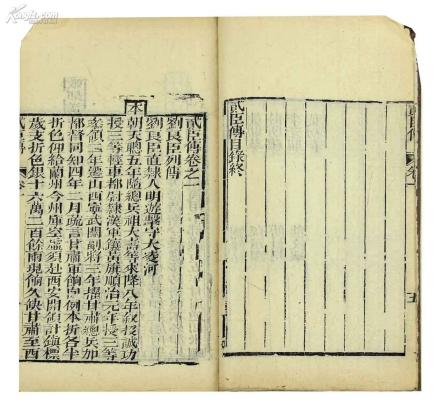 貳臣傳目錄終
貳臣傳卷之一
劉良臣列傳
劉良臣直隸人明遊擊守大凌河
本
朝天聰五年隨總兵祖大壽等來降八年敘投誠功
授三等輕車都尉隸漢軍鑲黃旗順治元年授三等
參領二年遷山西寧武關副將三年擢甘肅總兵加
都督同知四年二月疏言甘肅軍餉向例本折各半
折色仰給蘭州今州庫空虛須赴西安關領計鎮標
歲支折色銀十六萬二百餘兩現餉久缺甘肅至西
貳臣傳
卷一